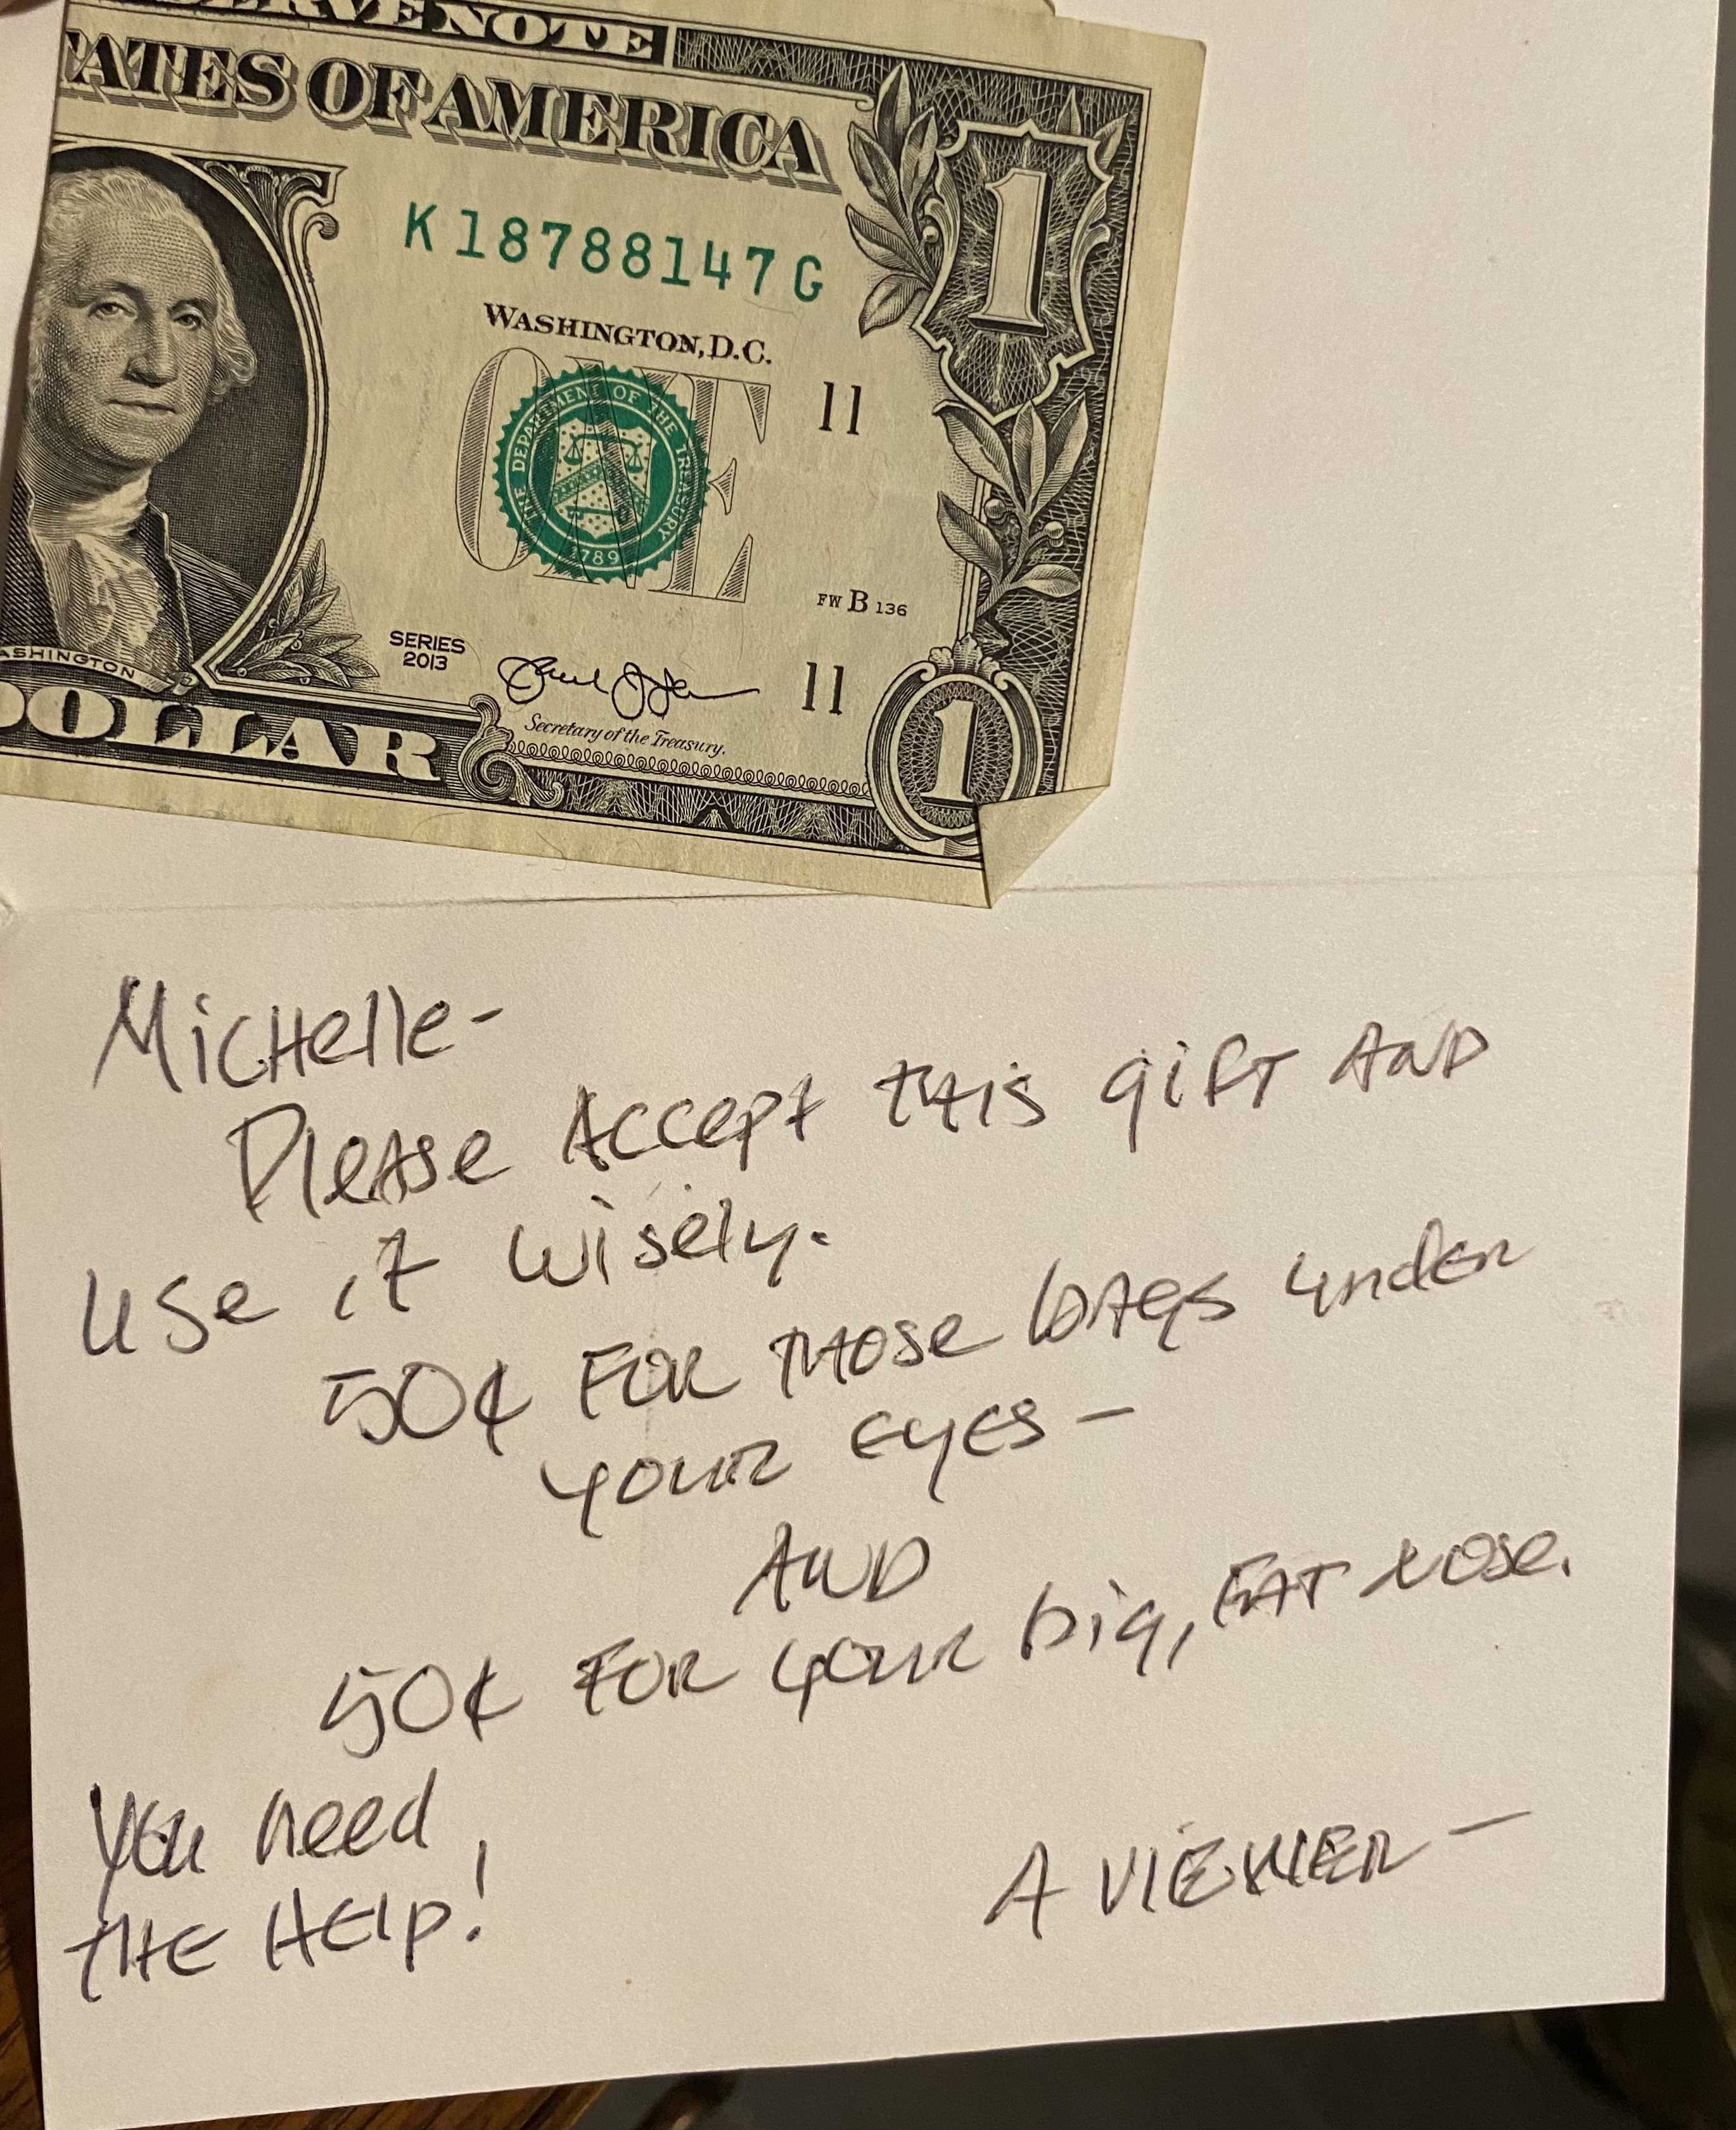 SERVE NOTE
ATES OF AMERICA
1
K 18788147 G
WASHINGTON, D.C.
ONE
THE DEPARTMENT OF THE TREASURY
1789
11
FW B 136
SERIES
2013
11
Secretary of the Treasury.
1
ASHINGTON
DOLLAR
Michelle-
Please Accept this gift and
use it wisely.
50¢ FOR those bags under
your eyes-
AND
50¢ FOR your big, FAT nose.
You need
the Help!
A VIEWER-